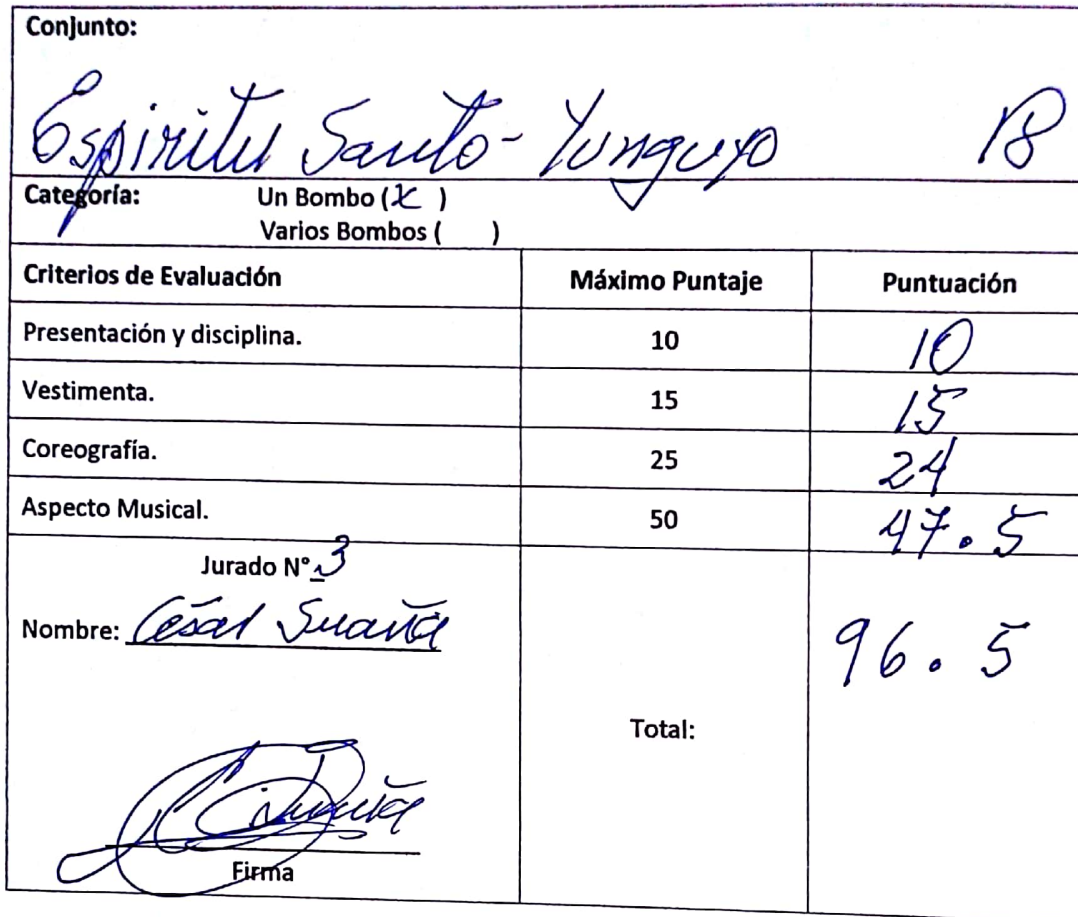 Conjunto:
Espiritu Santo - Yunguyo 18
Categoría: Un Bombo (x )
Varios Bombos ( )
Criterios de Evaluación Máximo Puntaje Puntuación
Presentación y disciplina. 10 10
Vestimenta. 15 15
Coreografía. 25 24
Aspecto Musical. 50 47.5
Jurado N° 3
Nombre: César Suaña
96.5
Total:
Firma